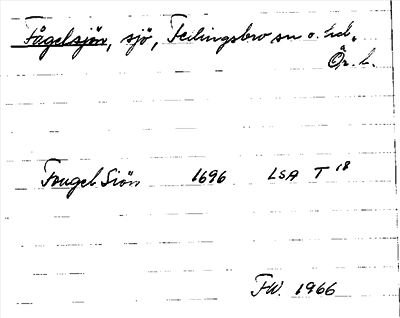 Fågelsjön, sjö, Fellingsbro sn o. hd,
Ör. l.
Fougel Siön 1696 LSA T 18
FW. 1966